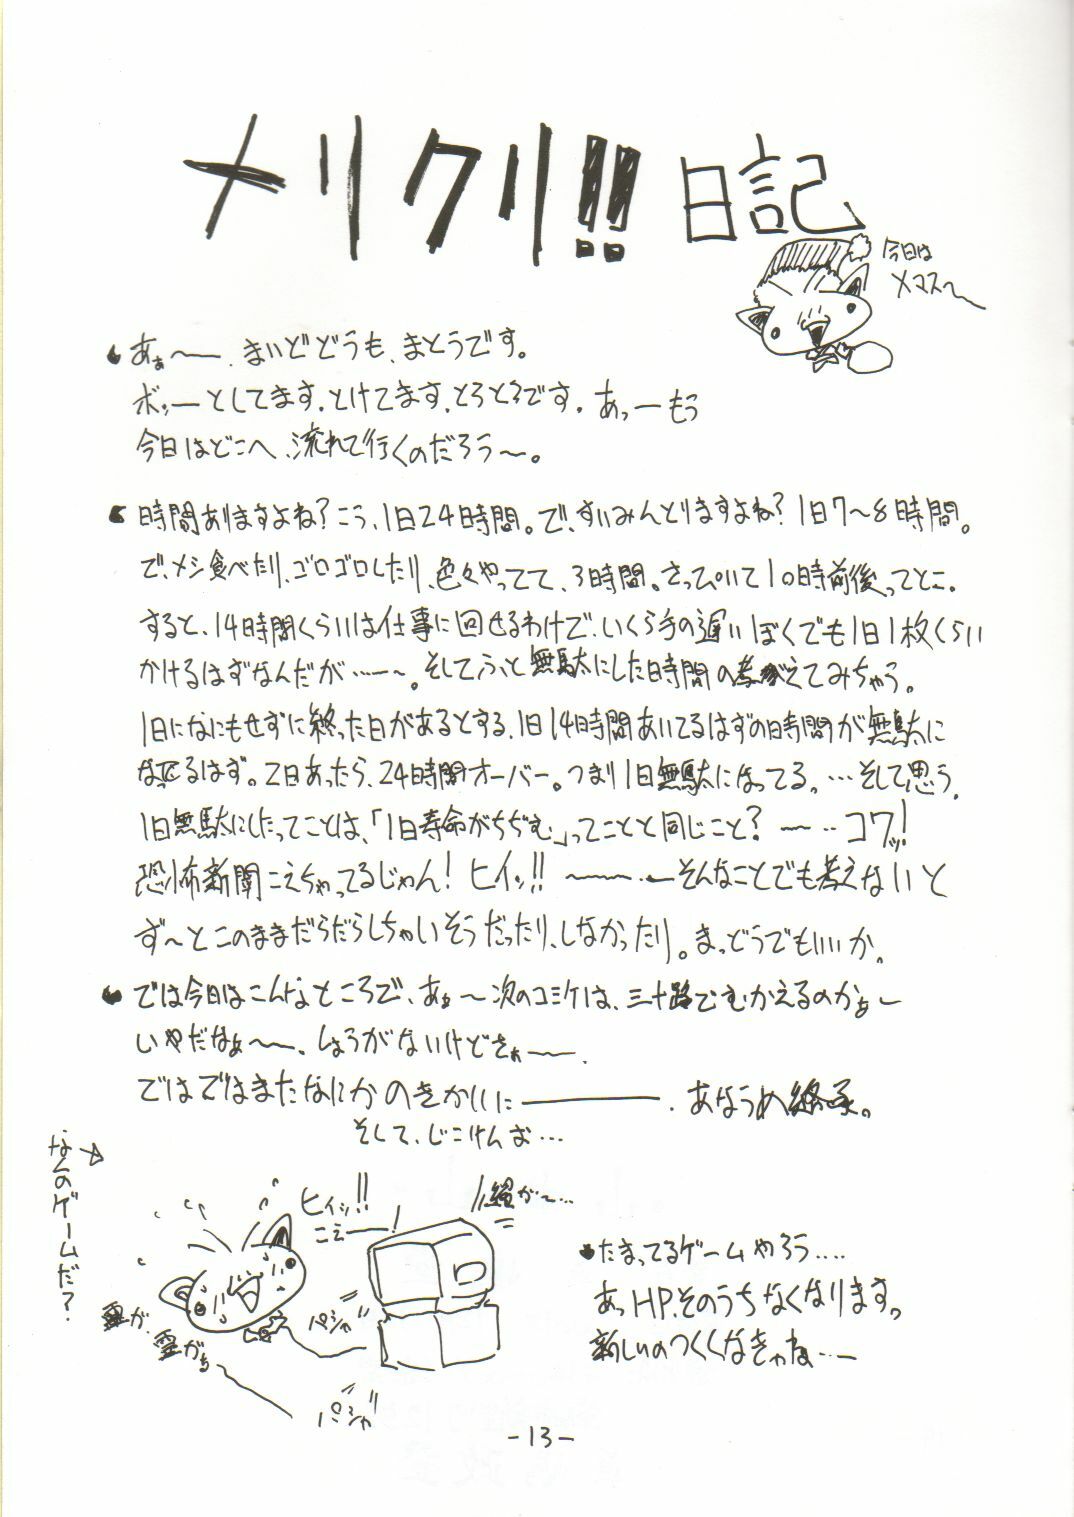 メリクリ!! 日記
今日は
メマス〜
あぁ〜ー、まいどどうも、まとうです。
ボッーとしてます、とけてます、とろとろです。あっーもう
今日はどこへ、流れて行くのだろう〜。
時間ありますよね?こう、1日24時間。で、すいみんとりますよね?1日7〜8時間。
で、メシ食べたり、ゴロゴロしたり、色々やってて、3時間。さっぴいて10時前後ってとこ。
すると、14時間くらいは仕事に回せるわけで、いくら手の遅いぼくでも1日1枚くらい
かけるはずなんだが……〜。そしてふっと無駄にした時間の考がえてみちゃう。
1日になにもせずに終った日があるとする、1日14時間あいてるはずの時間が無駄に
なってるはず。2日あったら、24時間オーバー。つまり1日無駄になってる。…そして思う。
1日無駄にしたってことは、「1日寿命がちぢむ」ってことと同じこと?〜‥コワッ!
恐怖新聞こえちゃってるじゃん!ヒイッ!!〜〜‥そんなことでも考えないと
ず〜とこのままだらだらしちゃいそうだったり、しなかったり。まっどうでもいいか。
では今日はこんなところで、あぁ〜次のコミケは、三十路でむかえるのかぁー
いやだなぁ〜〜、しょうがないけどさぁー〜。
ではではまたなにかのきかいに――――。あなうめ終了。
そして、じこけんお…
なんのゲームだ?
ヒィッ!!
こえー!
霊が、
霊がぁ
パシャ
パシャ
たまってるゲームやろう….
あっHP、そのうちなくなります。
新しいのつくくなきゃね…ー
-13-